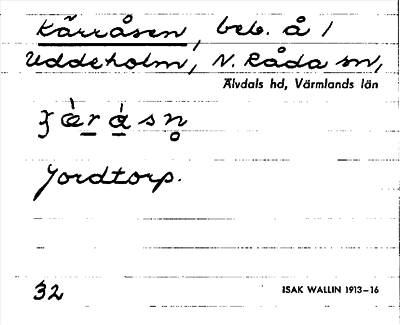 Kärråsen, beb. å /
Uddeholm, N. Råda sn,
Älvdals hd, Värmlands län
Jordtorp.
32
ISAK WALLIN 1913–16